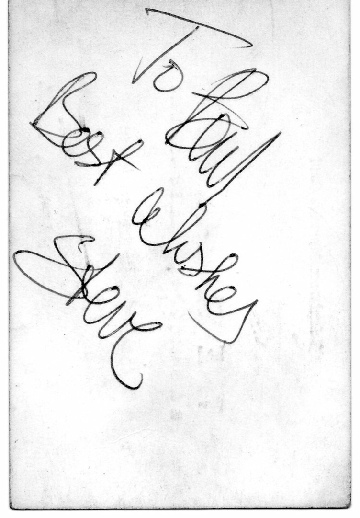 To Paul
Best wishes
Steve